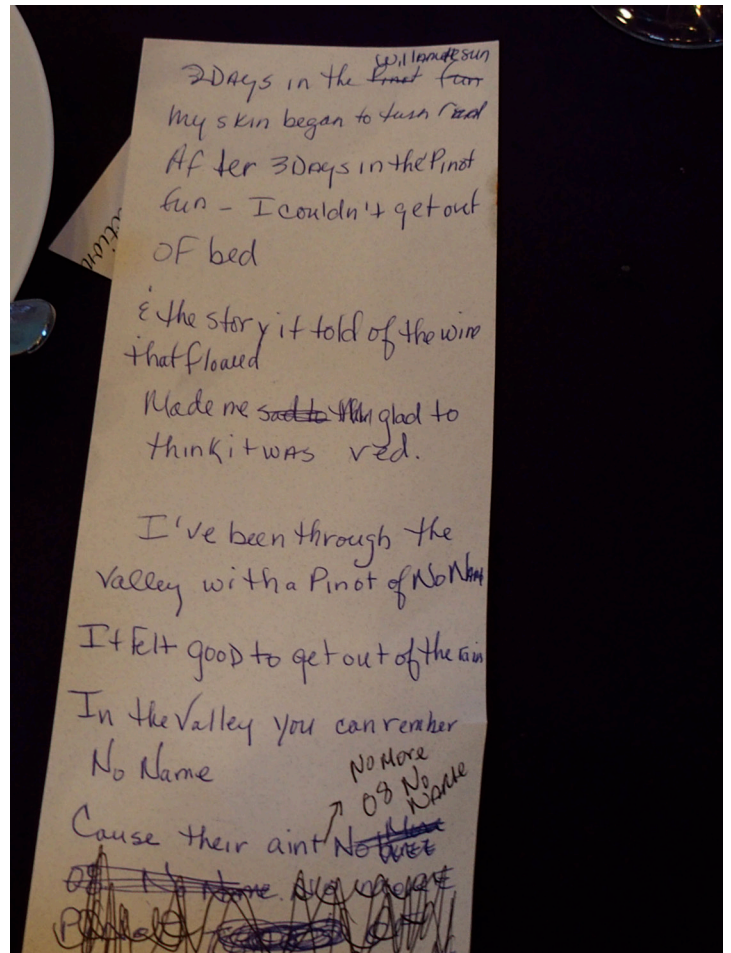 Willamette sun
2 Days in the Pinot fun
my skin began to turn read
After 3 Days in the Pinot
fun - I couldn't get out
OF bed
& the story it told of the wine
that flowed
Made me sad to glad to
think it was red.
I've been through the
Valley with a Pinot of No Name
It Felt good to get out of the rain
In the Valley you can rember
No Name
No More
08 No
NAME
Cause their aint No More
08 No Name
ctions